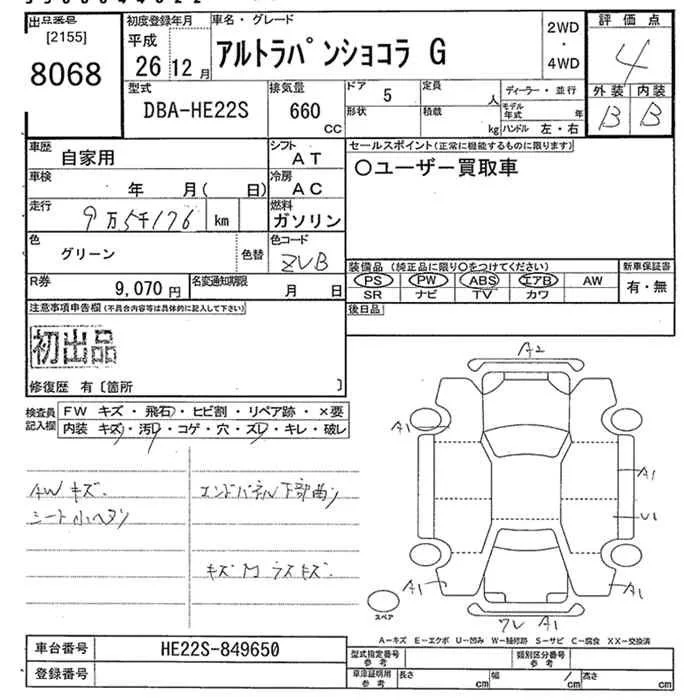 出品番号
[2155]
8068
初度登録年月
平成
26 12 月
車名・グレード
アルトラパンショコラ G
2WD
・
4WD
評価点
4
外装 内装
B B
型式
DBA-HE22S
排気量
660
CC
ドア 5
形状
定員
人
積載
kg
ディーラー・並行
モデル年式 年
ハンドル 左・右
車歴
自家用
シフト
AT
車検
年 月( 日)
冷房
AC
走行
9万5千176 km
燃料
ガソリン
色
グリーン
色替
色コード
ZVB
R券
9,070 円
名変通知期限
月 日
セールスポイント(正常に機能するものに限ります)
○ユーザー買取車
装備品 (純正品に限り○をつけてください)
PS PW ABS エアB AW
SR ナビ TV カワ
新車保証書
有・無
後日品
注意事項申告欄(不具合内容等は具体的に記入して下さい)
初出品
修復歴 有〔箇所 〕
検査員
記入欄
FW キズ・飛石・ヒビ割・リペア跡・×要
内装 キズ・汚レ・コゲ・穴・ズレ・キレ・破レ
AWキズ.
シート小ヘタリ
エンドパネル下部曲り
キズ
A2
A1
A1
U1
A1
A1
A1
スペア
A-キズ E-エクボ U-凹み W-補修跡 S-サビ C-腐食 XX-交換済
車台番号
HE22S-849650
登録番号
型式指定番号
参考
類別区分番号
参考
車庫証明用
参考
長さ
cm
幅
cm
高さ
cm